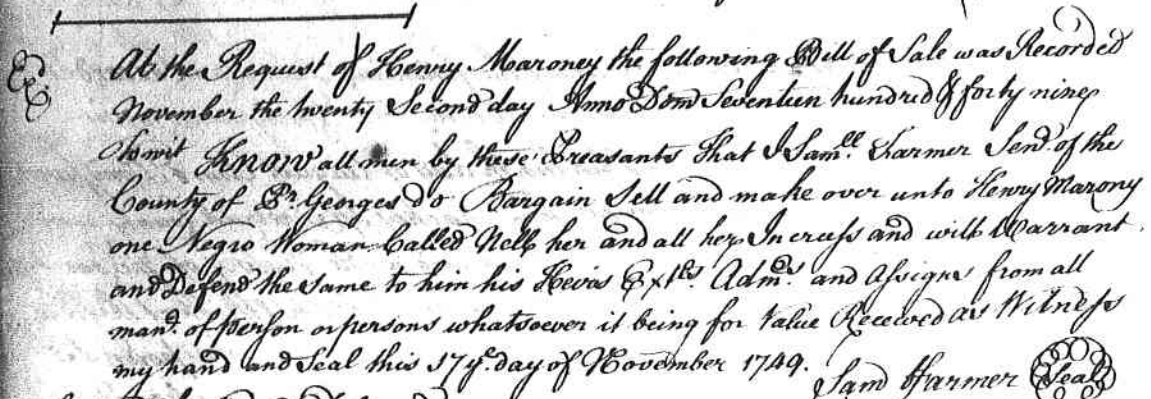 Ex.d
At the Request of Henry Maroney the following Bill of Sale was Recorded
November the twenty Second day Anno Dom Seventeen hundred & forty nine
To wit Know all men by these Preasants that I Sam.ll Farmer Sen.r of the
County of P.r Georges do Bargain Sell and make over unto Henry Marony
one Negro Woman Called Nell her and all her Increass and will Warrant
and Defend the Same to him his Heirs Ext.rs Adm.rs and Assigns from all
man.r of person or persons whatsoever it being for Value Received as Witness
my hand and Seal this 17 y.e day of November 1749.
Sam Farmer Seal